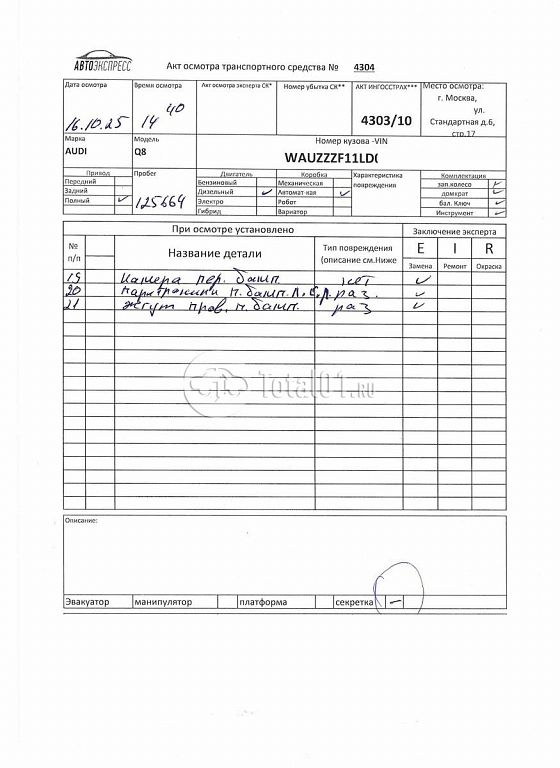 АВТОЭКСПРЕСС
Акт осмотра транспортного средства № 4304
Дата осмотра
16.10.25
Время осмотра
14 40
Акт осмотра эксперта СК*
Номер убытка СК**
АКТ ИНГОССТРАХ***
4303/10
Место осмотра:
г. Москва,
ул.
Стандартная д.6,
стр.17
Марка
AUDI
Модель
Q8
Номер кузова -VIN
WAUZZZF11LD
Привод
Передний
Задний
Полный
Пробег
125664
Двигатель
Бензиновый
Дизельный
Электро
Гибрид
Коробка
Механическая
Автомат-кая
Робот
Вариатор
Характеристика
повреждения
Комплектация
зап.колесо
домкрат
бал. Ключ
Инструмент
При осмотре установлено
Заключение эксперта
№
п/п
Название детали
Тип повреждения
(описание см.Ниже
E I R
Замена Ремонт Окраска
19 Камера пер. бамп нет
20 парктроники п. бамп. раз.
21 жгут пров. п. бамп. раз
Total01.RU
Описание:
Эвакуатор манипулятор платформа секретка —